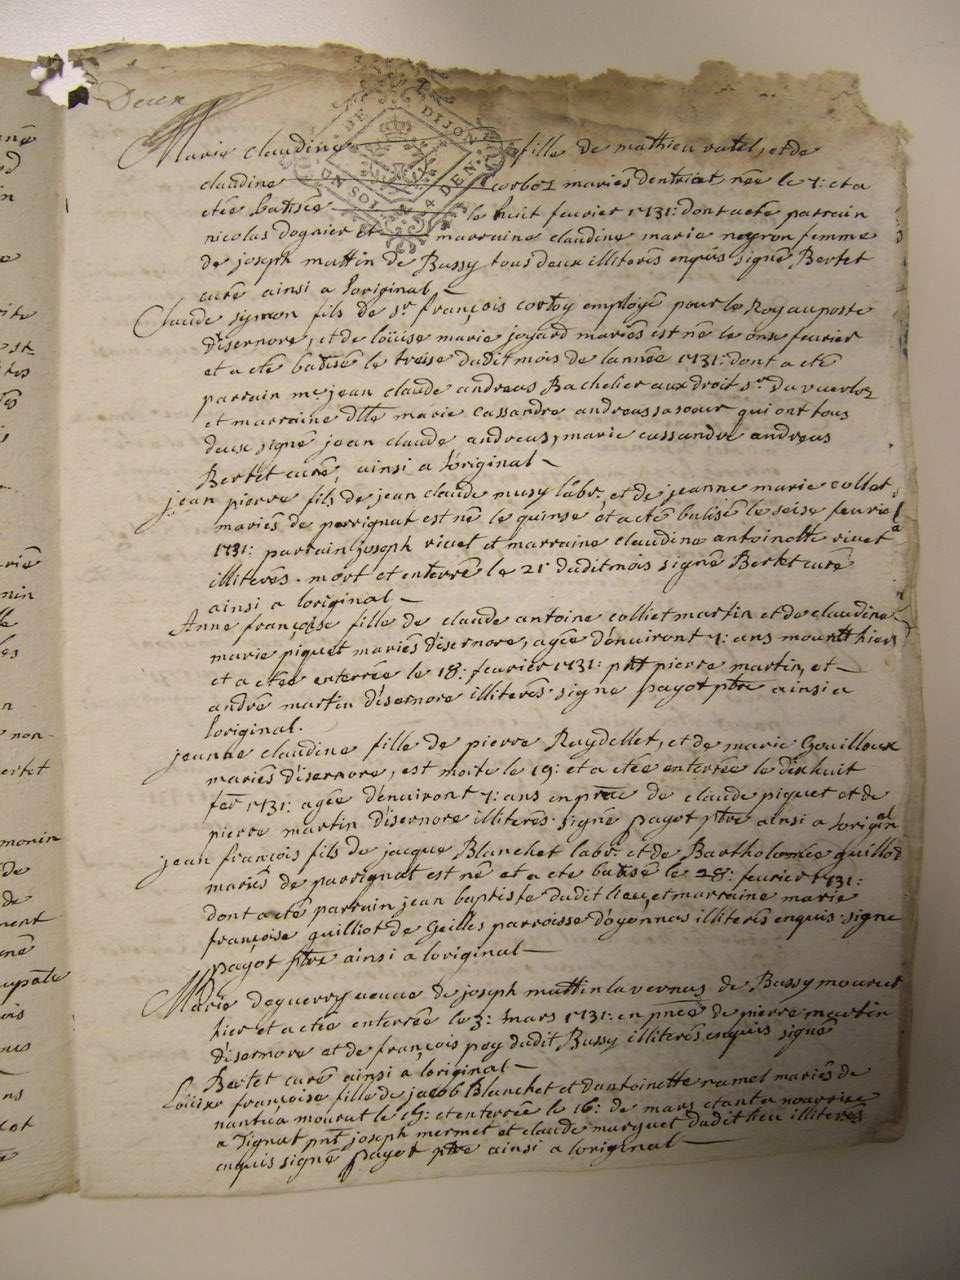 Deux
DE DIJON
UN SOL 4 DEN.
Marie claudine fille de mathieu vatel, et de
claudine corboz mariés dentriat née le 7: et a
etée batisée le huit feuvrier 1731: dont a eté parrain
nicolas dognier et marraine claudine marie neyron femme
de joseph mattin de Bussy tous deux illiterés enquis signé Bertet
curé ainsi a loriginal
Claude symon fils de sr. françois cortoy employé pour le Roy au poste
disernore, et de loüise marie joyard mariés est né le onse feuvrier
et a eté batisé le treise dudit mois de lannée 1731: dont a eté
parrain me jean claude andreas Bachelier aux droit sr.
et marraine dlle marie cassandre andreas sa soeur qui ont tous
deux signé jean claude andreas, marie cassandre andreas
Bertet curé, ainsi a loriginal
jean pierre fils de jean claude musy labr. et de jeanne marie collat
mariés de perrignat est né le quinse et a eté batisé le seise feuvrie
1731: parrain joseph rivet et marraine claudine antoinette rivet
illiterés. mort et enterré le 21 dudit mois signé Bertet curé
ainsi a loriginal
Anne françoise fille de claude antoine colliet martin et de claudine
marie piquet mariés disernore, agée denviront 7: ans mourut hier
et a etée enterrée le 18: feuvrier 1731: pnt pierre martin, et
andré martin disernore illiterés signé payot ptre ainsi a
loriginal.
jeanne claudine fille de pierre Reydellet, et de marie Gouilloux
mariés disernore, est morte le 19: et a etée enterrée le dixhuit
fer 1731: agée denviront 7: ans en pnce de claude piquet et de
pierre martin disernore illiterés signé payot ptre ainsi a loriginel
jean françois fils de jacque Blanchet labr. et de Bartholomée quillod
mariés de parrignat est né et a eté batisé le 28: feuvrier 1731:
dont a eté parrain jean baptiste dudit lieu, et marraine marie
françoise guilliot de Geilles parroisse doyonnas illiterés enquis signé
payot ptre ainsi a loriginal
Marie deguerry veuve de joseph mattin lavernus de Bussy mourut
hier et a etée enterrée le 3: mars 1731: en pnce de pierre martin
disernore et de françois pey dudit Bussy illiterés enquis signé
Bertet curé ainsi a loriginal
Loüise françoise fille de jacob Blanchet et dantoinette ramel mariés de
nantua mourut le 15: et enterrée le 16: de mars etant a nourrise
a Tignat pnt joseph mermet et claude murguet dudit lieu illiterés
enquis signé payot ptre ainsi a loriginal